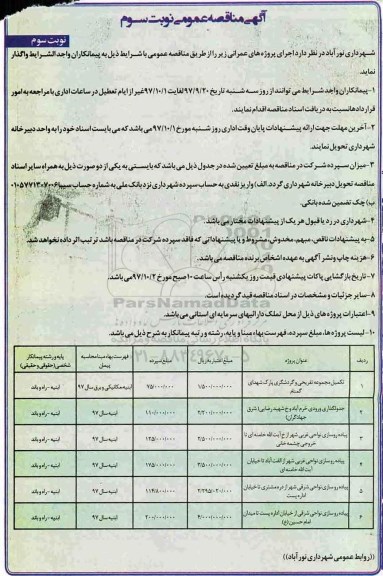 آگهی مناقصه عمومی نوبت سوم
نوبت سوم
شهرداری نورآباد در نظر دارد اجرای پروژه های عمرانی زیر را از طریق مناقصه عمومی با شرایط ذیل به پیمانکاران واجد الشرایط واگذار
نماید.
۱- پیمانکاران واجد شرایط می توانند از روز سه شنبه تاریخ ۹۷/۹/۲۰ لغایت ۹۷/۱۰/۱ غیر از ایام تعطیل در ساعات اداری با مراجعه به امور
قراردادها نسبت به دریافت اسناد مناقصه اقدام نمایند.
۲- آخرین مهلت جهت ارائه پیشنهادات پایان وقت اداری روز شنبه مورخ ۹۷/۱۰/۱ می باشد که می بایست اسناد خود را به واحد دبیرخانه
شهرداری تحویل نمایند.
۳- میزان سپرده شرکت در مناقصه به مبلغ تعیین شده در جدول ذیل می باشد که بایستی به یکی از دو صورت ذیل به همراه سایر اسناد
مناقصه تحویل دبیرخانه شهرداری گردد. الف) واریز نقدی به حساب سپرده شهرداری نزد بانک ملی به شماره حساب سیبا ۰۱۰۵۷۷۱۳۰۷۰۰۶
ب) چک تضمین شده بانکی.
۴- شهرداری در رد یا قبول هر یک از پیشنهادات مختار می باشد.
۵- به پیشنهادات ناقص، مبهم، مخدوش، مشروط و یا پیشنهاداتی که فاقد سپرده شرکت در مناقصه باشد ترتیب اثر داده نخواهد شد.
۶- هزینه چاپ و نشر آگهی به عهده اشخاص برنده مناقصه می باشد.
۷- تاریخ بازگشایی پاکات پیشنهادی قیمت روز یکشنبه راس ساعت ۱۰ صبح مورخ ۹۷/۱۰/۲ می باشد.
۸- سایر جزئیات و مشخصات در اسناد مناقصه قید گردیده است.
۹- اعتبارات پروژه های ذیل از محل تملک دارائیهای سرمایه ای استانی می باشد.
۱۰- لیست پروژه ها، مبلغ سپرده، فهرست بهاء مبنا و پایه رشته و رتبه پیمانکار به شرح ذیل می باشد.
ردیف عنوان پروژه مبلغ اعتبار به ریال مبلغ سپرده فهرست بهاء مبنا محاسبه پیمان پایه و رشته پیمانکار شخصی (حقوقی و حقیقی)
۱ تکمیل مجموعه تفریحی و گردشگری پارک شهدای گمنام ۱/۵۰۰/۰۰۰/۰۰۰ ۷۵/۰۰۰/۰۰۰ ابنیه مکانیکی و برق سال ۹۷ ابنیه - راه و باند
۲ جدولگذاری ورودی خرم آباد و خ شهید رضایی (شرق جهادگران) ۲/۲۰۰/۰۰۰/۰۰۰ ۱۱۰/۰۰۰/۰۰۰ ابنیه سال ۹۷ ابنیه - راه و باند
۳ پیاده روسازی نواحی غربی شهر از خ آیت الله خامنه ای تا خروجی چشمه خانی ۲/۵۰۰/۰۰۰/۰۰۰ ۱۲۵/۰۰۰/۰۰۰ ابنیه سال ۹۷ ابنیه - راه و باند
۴ پیاده روسازی نواحی غربی شهر از الفت آباد تا خیابان آیت الله خامنه ای ۳/۵۰۰/۰۰۰/۰۰۰ ۱۷۵/۰۰۰/۰۰۰ ابنیه سال ۹۷ ابنیه - راه و باند
۵ پیاده روسازی نواحی شرقی شهر از دره مشتری تا خیابان اداره پست ابنیه سال ۹۷ ابنیه - راه و باند
۶ پیاده روسازی نواحی شرقی از خیابان اداره پست تا میدان امام حسین (ع) ۴/۰۰۰/۰۰۰/۰۰۰ ۲۰۰/۰۰۰/۰۰۰ ابنیه سال ۹۷ ابنیه - راه و باند
((روابط عمومی شهرداری نورآباد))
ParsNamadData